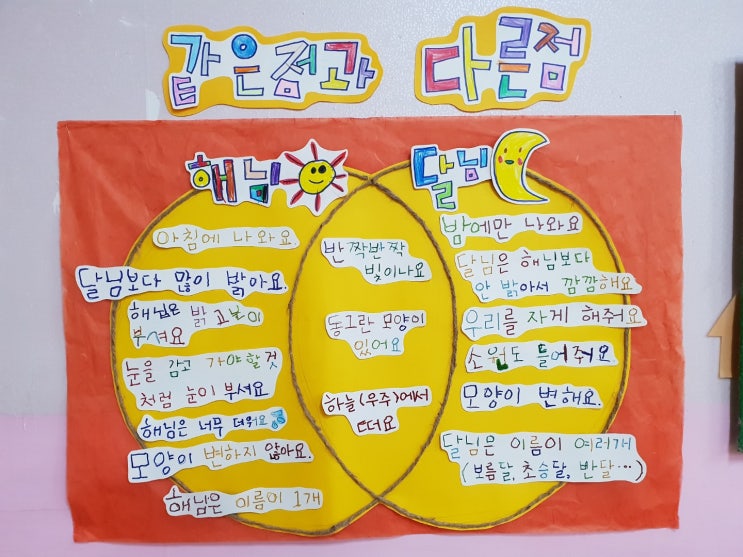 같은점과 다른점
해님
아침에 나와요
달님보다 많이 밝아요.
해님은 밝고 눈이
부셔요
눈을 감고 가야할것
처럼 눈이 부셔요
해님은 너무 더워요
모양이 변하지 않아요.
해님은 이름이 1개
반짝반짝
빛이나요
동그란 모양이
있어요
하늘(우주)에서
떠요
달님
밤에만 나와요
달님은 해님보다
안 밝아서 깜깜해요
우리를 자게 해줘요
소원도 들어줘요
모양이 변해요.
달님은 이름이 여러개
(보름달, 초승달, 반달…)